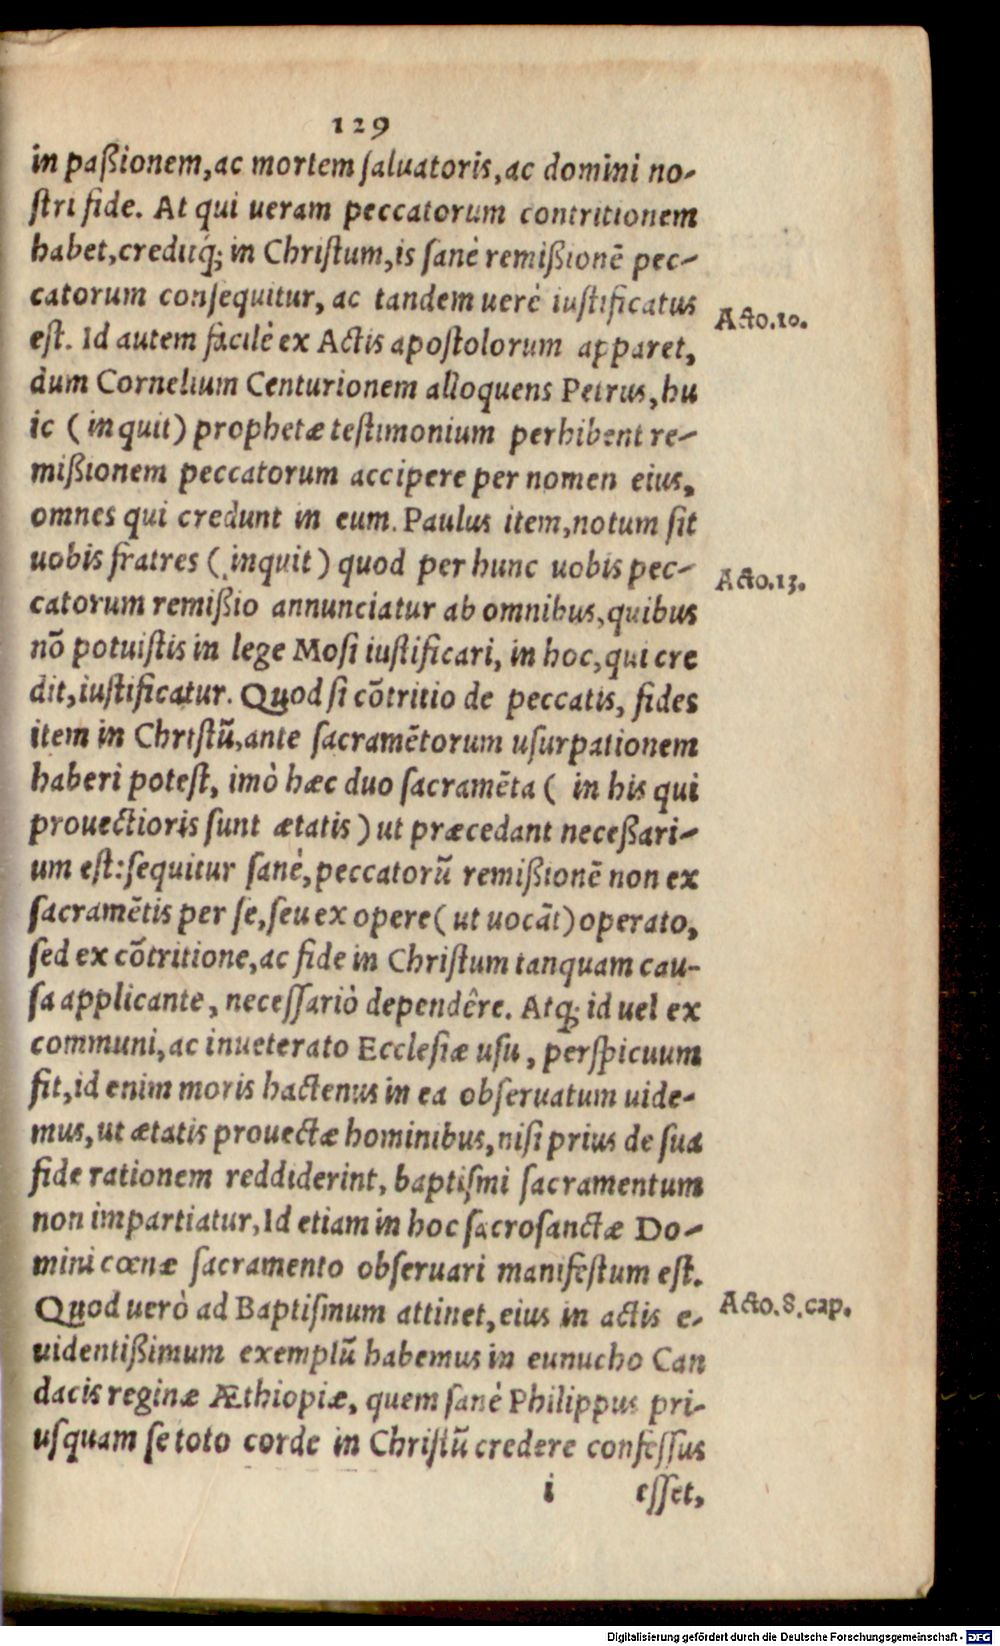 129
in paßionem, ac mortem ſaluatoris, ac domini no-
ſtri fide. At qui ueram peccatorum contritionem
habet, creditq́; in Chriſtum, is ſanè remißionē pec-
catorum conſequitur, ac tandem uerè iuſtificatus
Acto.10.
eſt. Id autem facilè ex Actis apoſtolorum apparet,
dum Cornelium Centurionem alloquens Petrus, hu
ic ( inquit ) prophetæ teſtimonium perhibent re-
mißionem peccatorum accipere per nomen eius,
omnes qui credunt in eum. Paulus item, notum ſit
uobis fratres ( inquit ) quod per hunc uobis pec-
Acto.13.
catorum remißio annunciatur ab omnibus, quibus
nō potuiſtis in lege Moſi iuſtificari, in hoc, qui cre
dit, iuſtificatur. Quod ſi cōtritio de peccatis, fides
item in Chriſtū, ante ſacramētorum uſurpationem
haberi poteſt, imò hæc duo ſacramēta ( in his qui
prouectioris ſunt ætatis ) ut præcedant neceßari-
um eſt: ſequitur ſanè, peccatorū remißionē non ex
ſacramētis per ſe, ſeu ex opere ( ut uocāt ) operato,
ſed ex cōtritione, ac fide in Chriſtum tanquam cau-
ſa applicante, neceſſariò dependêre. Atq; id uel ex
communi, ac inueterato Eccleſiæ uſu, perſpicuum
ſit, id enim moris hactenus in ea obſeruatum uide-
mus, ut ætatis prouectæ hominibus, niſi prius de ſua
fide rationem reddiderint, baptiſmi ſacramentum
non impartiatur, Id etiam in hoc ſacroſanctæ Do-
mini cœnæ ſacramento obſeruari manifeſtum eſt.
Quod uerò ad Baptiſmum attinet, eius in actis e-
Acto.8.cap.
uidentißimum exemplū habemus in eunucho Can
dacis reginæ Æthiopiæ, quem ſanè Philippus pri-
uſquam ſe toto corde in Chriſtū credere confeſſus
i eſſet,
Digitalisierung gefördert durch die Deutsche Forschungsgemeinschaft - DFG